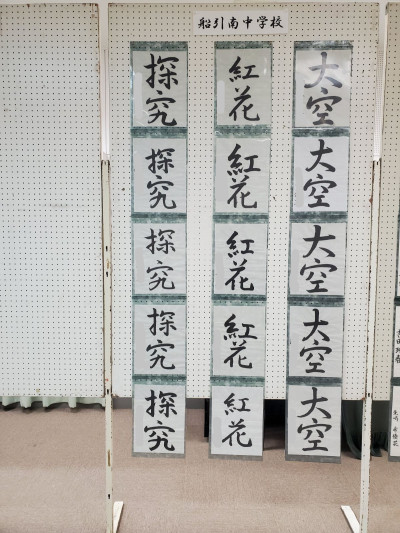 船引南中学校
大空
大空
大空
大空
大空
紅花
紅花
紅花
紅花
紅花
探究
探究
探究
探究
探究